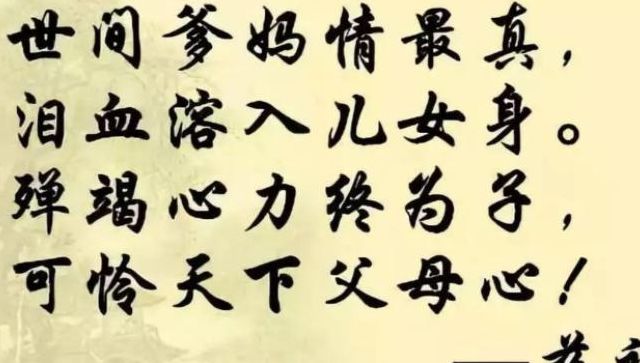 世间爹妈情最真，
泪血溶入儿女身。
殚竭心力终为子，
可怜天下父母心！